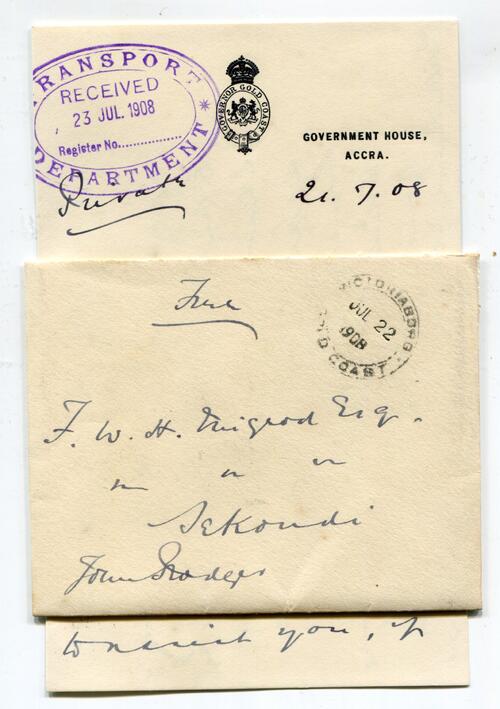 TRANSPORT
RECEIVED
23 JUL. 1908
Register No.
DEPARTMENT
GOVERNOR GOLD COAST
GOVERNMENT HOUSE,
ACCRA.
Private
21.7.08
Free
VICTORIABORG
JUL 22
1908
GOLD COAST
F. W. H. Migeod Esq.
Sekondi
John Rodger
to assist you, if